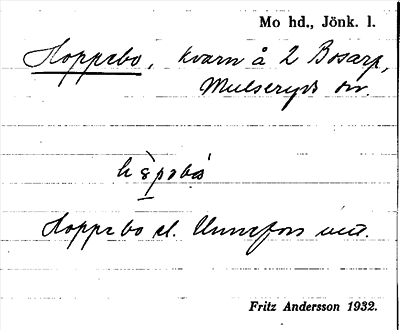 Mo hd., Jönk. l.
Hoppsbo, kvarn å 2 Bosarp,
Mulseryds sn.
Hoppsbo el. Unnefors
Fritz Andersson 1932.